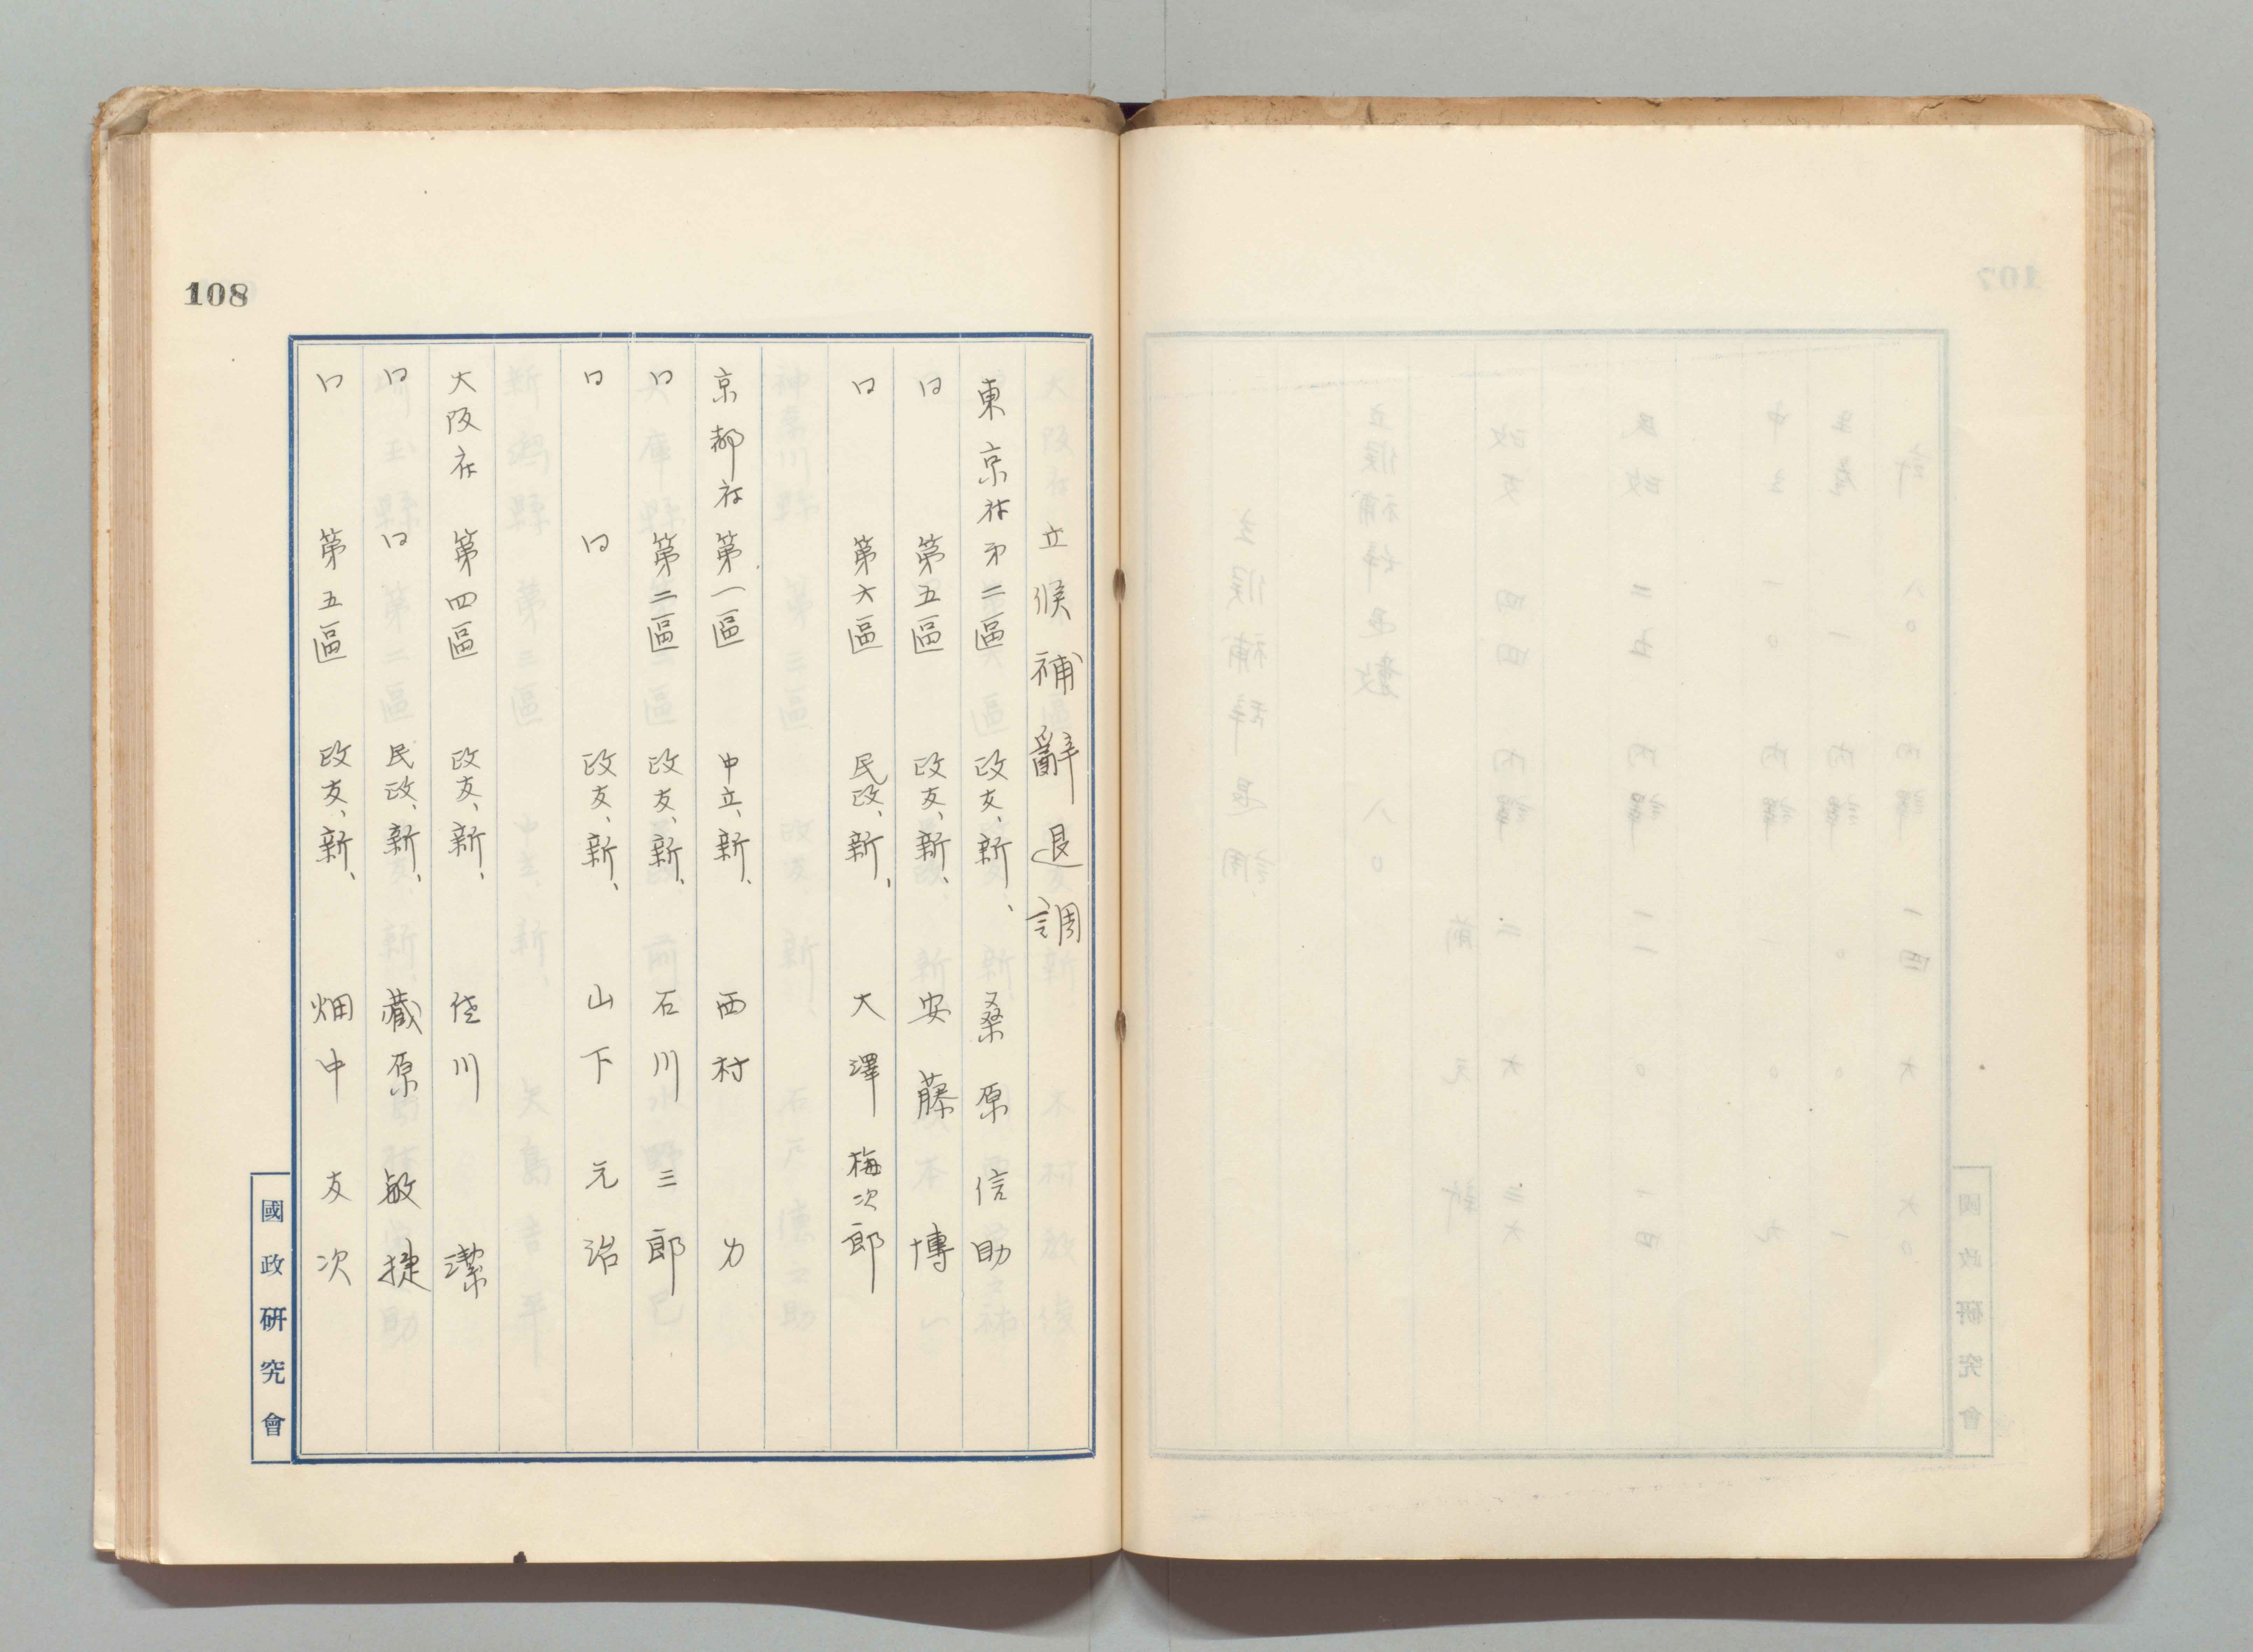 108
立候補辭退調
東京府第二區 政友、新、 桑原信助
〃 第五區 政友、新、 安藤博
〃 第六區 民政、新、 大澤梅次郎
京都府第一區 中立、新、 西村力
〃 第二區 政友、新、 石川三郎
〃 〃 政友、新、 山下元治
大阪府 第四區 政友、新、 佐川潔
〃 〃 民政、新、 藏原敏捷
〃 第五區 政友、新、 畑中友次
國政研究會